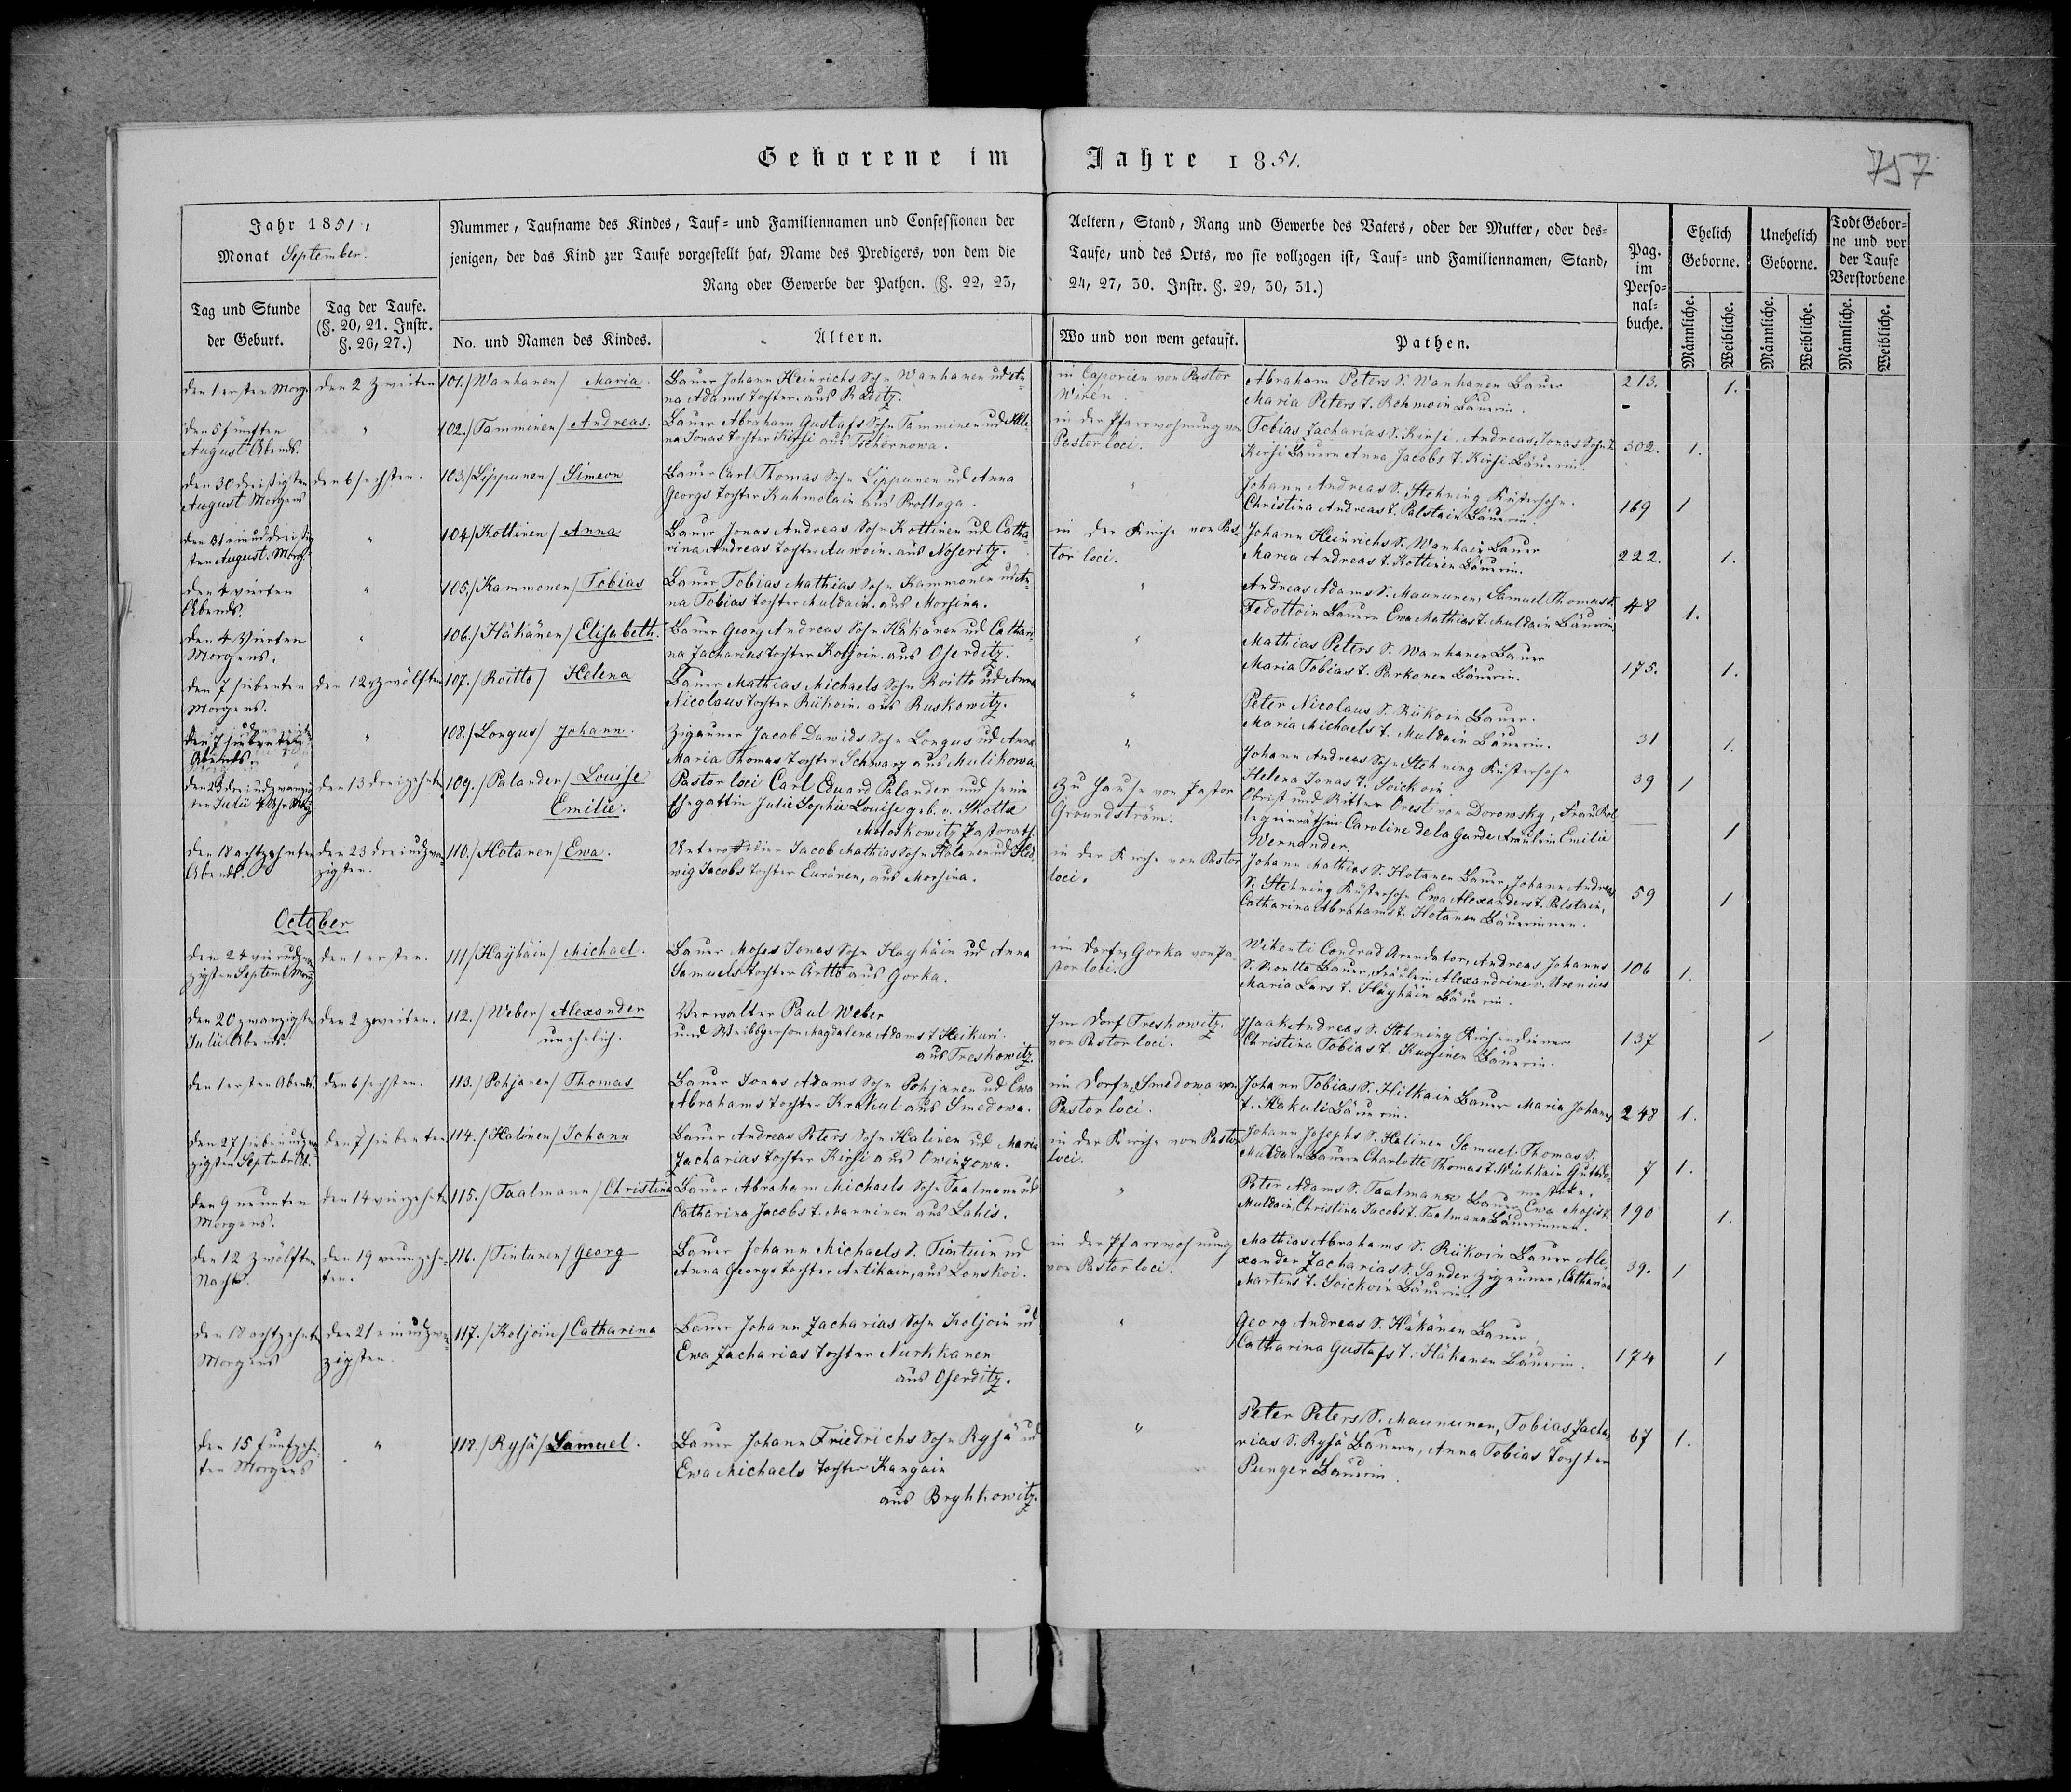 Geborene im Jahre 1851.
757
Jahr 1851,
Monat September.
Nummer, Taufname des Kindes, Tauf- und Familiennamen und Confessionen der
jenigen, der das Kind zur Taufe vorgestellt hat, Name des Predigers, von dem die
Rang oder Gewerbe der Pathen. (§. 22, 23,
Aeltern, Stand, Rang und Gewerbe des Vaters, oder der Mutter, oder des-
Taufe, und des Orts, wo sie vollzogen ist, Tauf- und Familiennamen, Stand,
24, 27, 30. Instr. §. 29, 30, 31.)
Pag.
im
Perso-
nal-
buche.
Ehelich
Geborne.
Unehelich
Geborne.
Todt Gebor-
ne und vor
der Taufe
Verstorbene
Tag und Stunde
der Geburt.
Tag der Taufe.
(§. 20, 21. Instr.
§. 26, 27.)
No. und Namen des Kindes.
Ältern.
Wo und von wem getauft.
Pathen.
Männliche.
Weibliche.
Männliche.
Weibliche.
Männliche.
Weibliche.
den 1 ersten Morg.
den 2 zweiten
101./ Wanhanen / Maria.
Bauer Johann Heinrichs Sohn Wanhanen ud An-
na Adams Tochter aus Raditz.
in Caporien von Pastor
Wiren.
Abraham Peters S. Wanhanen Bauer
Maria Peters T. Rohmoin Bäuerin.
213.
1.
den 5 fünften
August Abends.
"
102./ Tamminen / Andreas.
Bauer Abraham Gustafs Sohn Tamminen ud Hele-
na Jonas Tochter Kirsi aus Tschernowa.
in der Pfarrwohnung von
Pastor loci.
Tobias Zacharias S. Kirsi, Andreas Jonas Sohn
Kirsi Bauern Anna Jacobs T. Kirsi Bäuerin.
302.
1.
den 30 dreißigsten
August Morgens
den 6 sechsten.
103./ Lippunen / Simeon
Bauer Carl Thomas Sohn Lippunen ud Anna
Georgs Tochter Kuhmolain aus Proltoga.
"
Johann Andreas S. Stehning Küstersohn.
Christina Andreas T. Palstain Bäuerin.
169
1
den 31 einunddreißig
sten August. Morg.
"
104/ Kottinen / Anna
Bauer Jonas Andreas Sohn Kottinen ud Catha-
rina Andreas Tochter Auwoin aus Noseritz.
in der Kirche von Pas-
tor loci.
Johann Heinrichs S. Wanhain Bauer
Maria Andreas T. Kottinen Bäuerin.
222.
1.
den 4 vierten
Abends.
"
105./ Kammonen / Tobias
Bauer Tobias Mathias Sohn Kammonen ud An-
na Tobias Tochter Muldain aus Morsina.
"
Andreas Adams S. Maununen, Samuel Thomas S.
Fedottoin Bauern Ewa Mathias T. Muldain Bäuerin,
48
1.
den 4 vierten
Morgens.
"
106./ Häkänen / Elisabeth.
Bauer Georg Andreas Sohn Häkänen ud Cathari-
na Zacharias Tochter Koljoin aus Oserditz.
"
Mathias Peters S. Wanhanen Bauer
Maria Tobias T. Parkonen Bäuerin.
175.
1.
den 7 siebenten
Morgens.
den 12 zwölften
107./ Roitto / Helena
Bauer Mathias Michaels Sohn Roitto ud Anna
Nicolaus Tochter Rükoin aus Ruskowitz.
"
Peter Nicolaus S. Rükoin Bauer.
Maria Michaels T. Muldain Bäuerin.
31
1.
den 7 siebenten
Abends.
"
108./ Longus / Johann.
Zigeuner Jacob Dawids Sohn Longus ud Anna
Maria Thomas Tochter Schwarz aus Mulikowa.
"
Johann Andreas Sohn Stehning Küstersohn
Helena Jonas T. Soickoin.
39
1
den 13 dreizehnten
109./ Palander / Louise
Emilie.
Pastor loci Carl Eduard Palander und seine
Ehegattin Julie Sophie Louise geb. v. Nolte
Moloskowitz Pastorath.
Zu Hause von Pastor
Groundström.
Obrist und Ritter Orest von Dorowsky, Frau Kol-
legienräthin Caroline de la Garde Fräulein Emilie
Wernander.
1
den 18 achtzehnten
Abends.
den 23 dreiundzwan-
zigsten.
110./ Hotanen / Ewa.
Jacob Mathias Sohn Hotanen ud Hed-
wig Jacobs Tochter Euränen, aus Morsina.
in der Kirche von Pastor
loci.
Johann Mathias S. Hotanen Bauer, Johann Andreas
S. Stehning Küstersohn Ewa Alexanders T. Palstain,
Catharina Abrahams T. Hotanen Bäuerinnen.
59
1
October
den 24 vierundzwan-
zigsten Septemb. Morg.
den 1 ersten.
111/ Hayhäin / Michael.
Bauer Moses Jonas Sohn Hayhäin ud Anna
Samuels Tochter Ärtto aus Gorka.
im Dorfe Gorka von Pa-
stor loci.
Wikenti Condrad Arendator, Andreas Johanns
S. Rontto Bauer, Fräulein Alexandrine v. Arenius
Maria Lars T. Häyhäin Bäuerin.
106
1.
den 20 zwanzigsten
Julii Abends.
den 2 zweiten.
112./ Weber / Alexander
unehelich.
Verwalter Paul Weber
und Weibsperson Magdalena Adams T. Heikuri
aus Treskowitz.
Im Dorf Treskowitz.
von Pastor loci.
Isaak Andreas S. Stehning Kirchendiener
Christina Tobias T. Kuosinen Bäuerin.
137
1
den 1 ersten Abends.
den 6 sechsten.
113./ Pohjanen / Thomas
Bauer Jonas Adams Sohn Pohjanen ud Ewa
Abrahams Tochter Krakul aus Smedowa.
im Dorfe Smedowa von
Pastor loci.
Johann Tobias S. Hilkain Bauer Maria Johanns
T. Kakuli Bäuerin.
248
1.
den 27 siebenundzwan-
zigsten Septmbr Ab.
den 7 siebenten
114./ Halinen / Johann
Bauer Andreas Peters Sohn Halinen ud Maria
Zacharias Tochter Kirsi aus Owinzowa.
in der Kirche von Pastor
loci.
Johann Josephs S. Halinen Samuel Thomas S.
Muldain Bauern Charlotte Thomas T.
7
1.
den 9 neunten
Morgens.
den 14 vierzehnten
115./ Taalmann / Christina
Bauer Abraham Michaels Sohn Taalmann ud
Catharina Jacobs T. Manninen aus Lahis.
"
Peter Adams S. Taalmann Bauer Ewa Mosis T.
Muldain, Christina Jacobs T. Taalmann Bäuerinnen.
190
1.
den 12 zwölften
Nachts.
den 19 neunzehn-
ten.
116./ Tintunen / Georg
Bauer Johann Michaels S. Timtuin ud
Anna Georgs Tochter Antikain, aus Lonskoi.
in der Pfarrwohnung
von Pastor loci.
Mathias Abrahams S. Rükoin Bauer Ale-
xander Zacharias S. Sander Zigeuner, Catharina
Martins T. Soickoin Bäuerin.
39.
1
den 18 achtzehnten
Morgens
den 21 einundzwan-
zigsten.
117./ Koljoin / Catharina
Bauer Johann Zacharias Sohn Koljoin ud
Ewa Zacharias Tochter Nurkkanen
aus Oserditz.
"
Georg Andreas S. Häkänen Bauer,
Catharina Gustafs T. Häkänen Bäuerin.
174
1
den 15 fünfzehn-
ten Morgens
"
118./ Rysä / Samuel.
Bauer Johann Friedrichs Sohn Rysä ud
Ewa Michaels Tochter Kangain
aus Bryhkowitz.
"
Peter Peters S. Maununen, Tobias Zacha-
rias S. Rysä Bauern, Anna Tobias Tochter
Punger Bäuerin.
67
1.